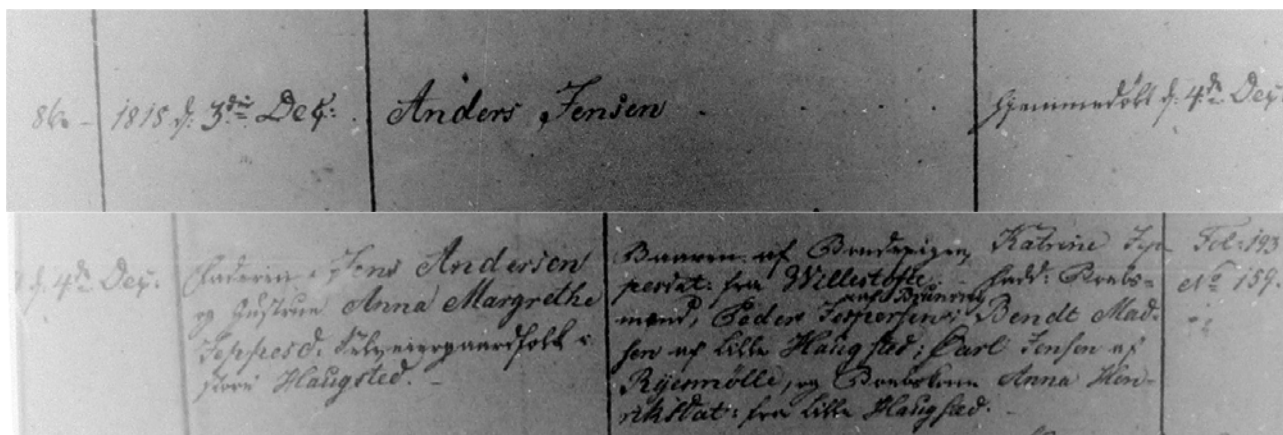 86 - 1815 d: 3die Deç: Anders Jensen hjemmedöbt d: 4de Deç
d: 4de Deç:
Faderen Jens Andersen
og Hustrue Anna Margrethe
Jeppesd. Selveiergaardfolk i
store Haugsted. -
Baaren af Bondepigen Katrine Jep-
pesdat: fra Willestofte. - Fadd: Boels-
mænd, Peder Jespersen af Bruning; Bendt Mad-
sen af lille Haugsted; Carl Jensen af
Ryemølle, og Boelskone Anna Hen-
riksdat: fra lille Haugsted.
Fol: 193
No 159.